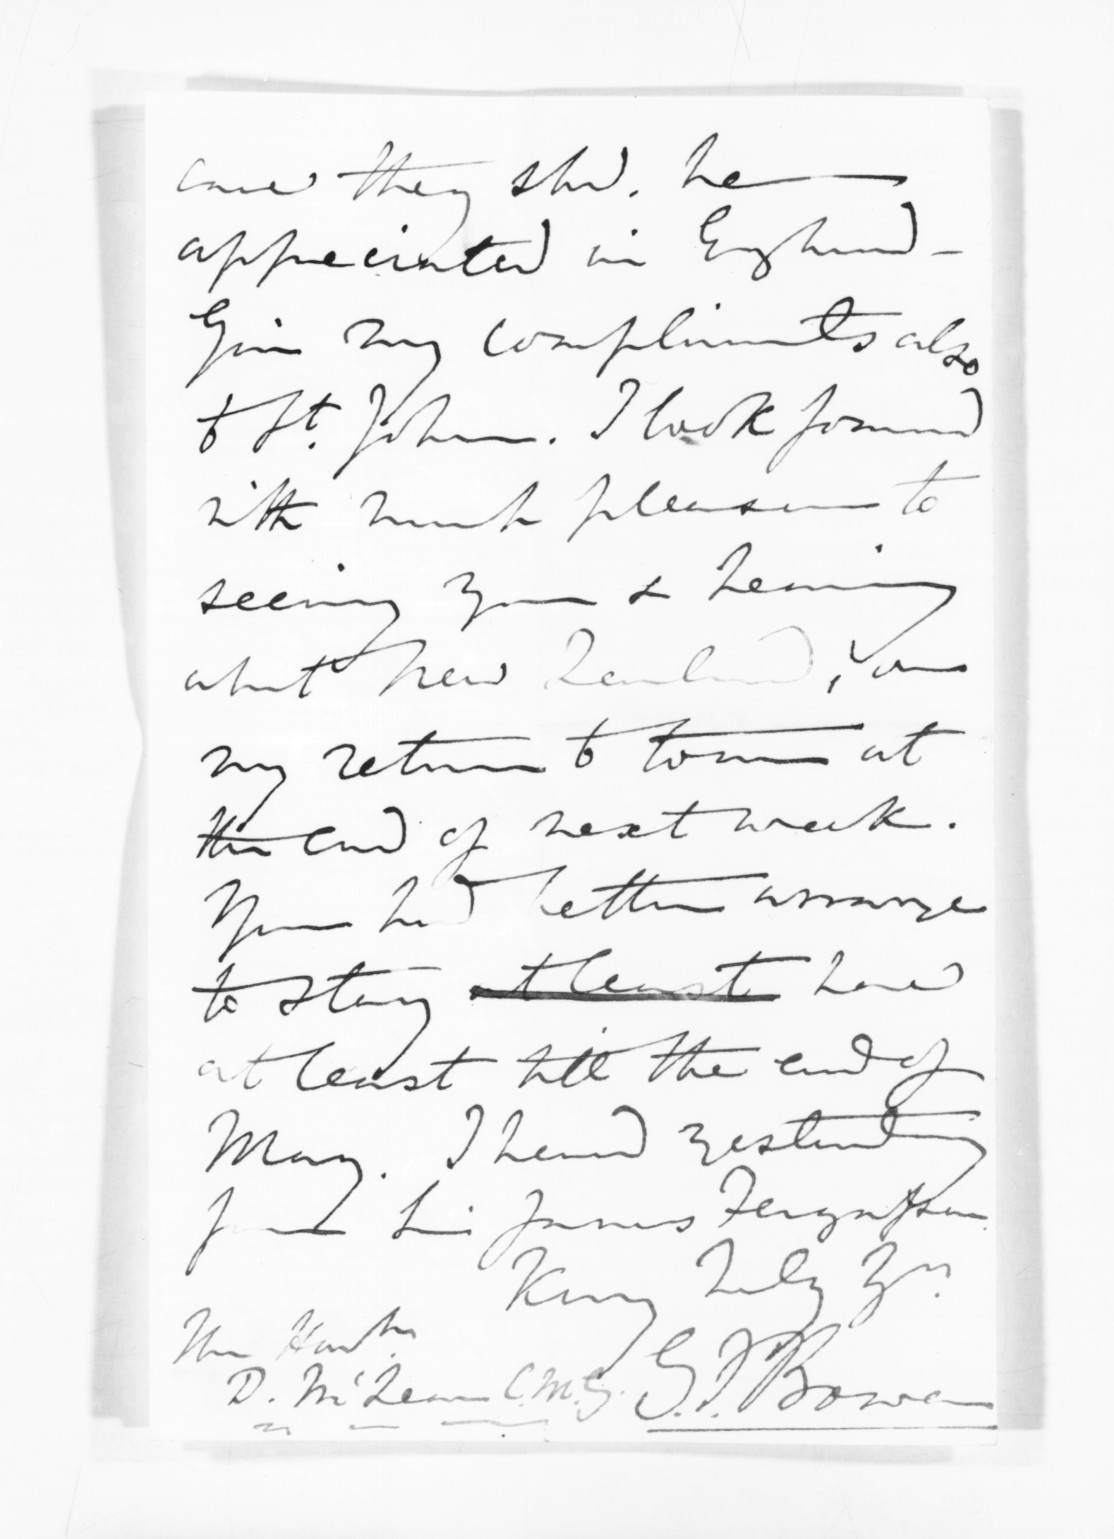 care they shd. be
appreciated in England -
Give my compliments also
to St. John. I look forward
with much pleasure to
seeing you & hearing
about New Zealand, on
my return to town at
the end of next week.
You had better arrange
to stay at least here
at least till the end of
May. I heard yesterday
from Sir James Fergusson.
Very truly yrs.
G. F. Bowen
The Honble.
D. McLean C.M.G.